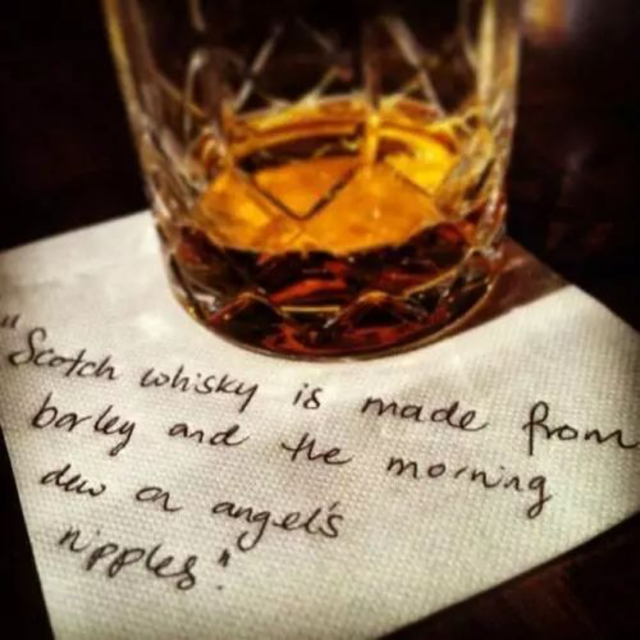 "Scotch whisky is made from
barley and the morning
dew on angel's
nipples."